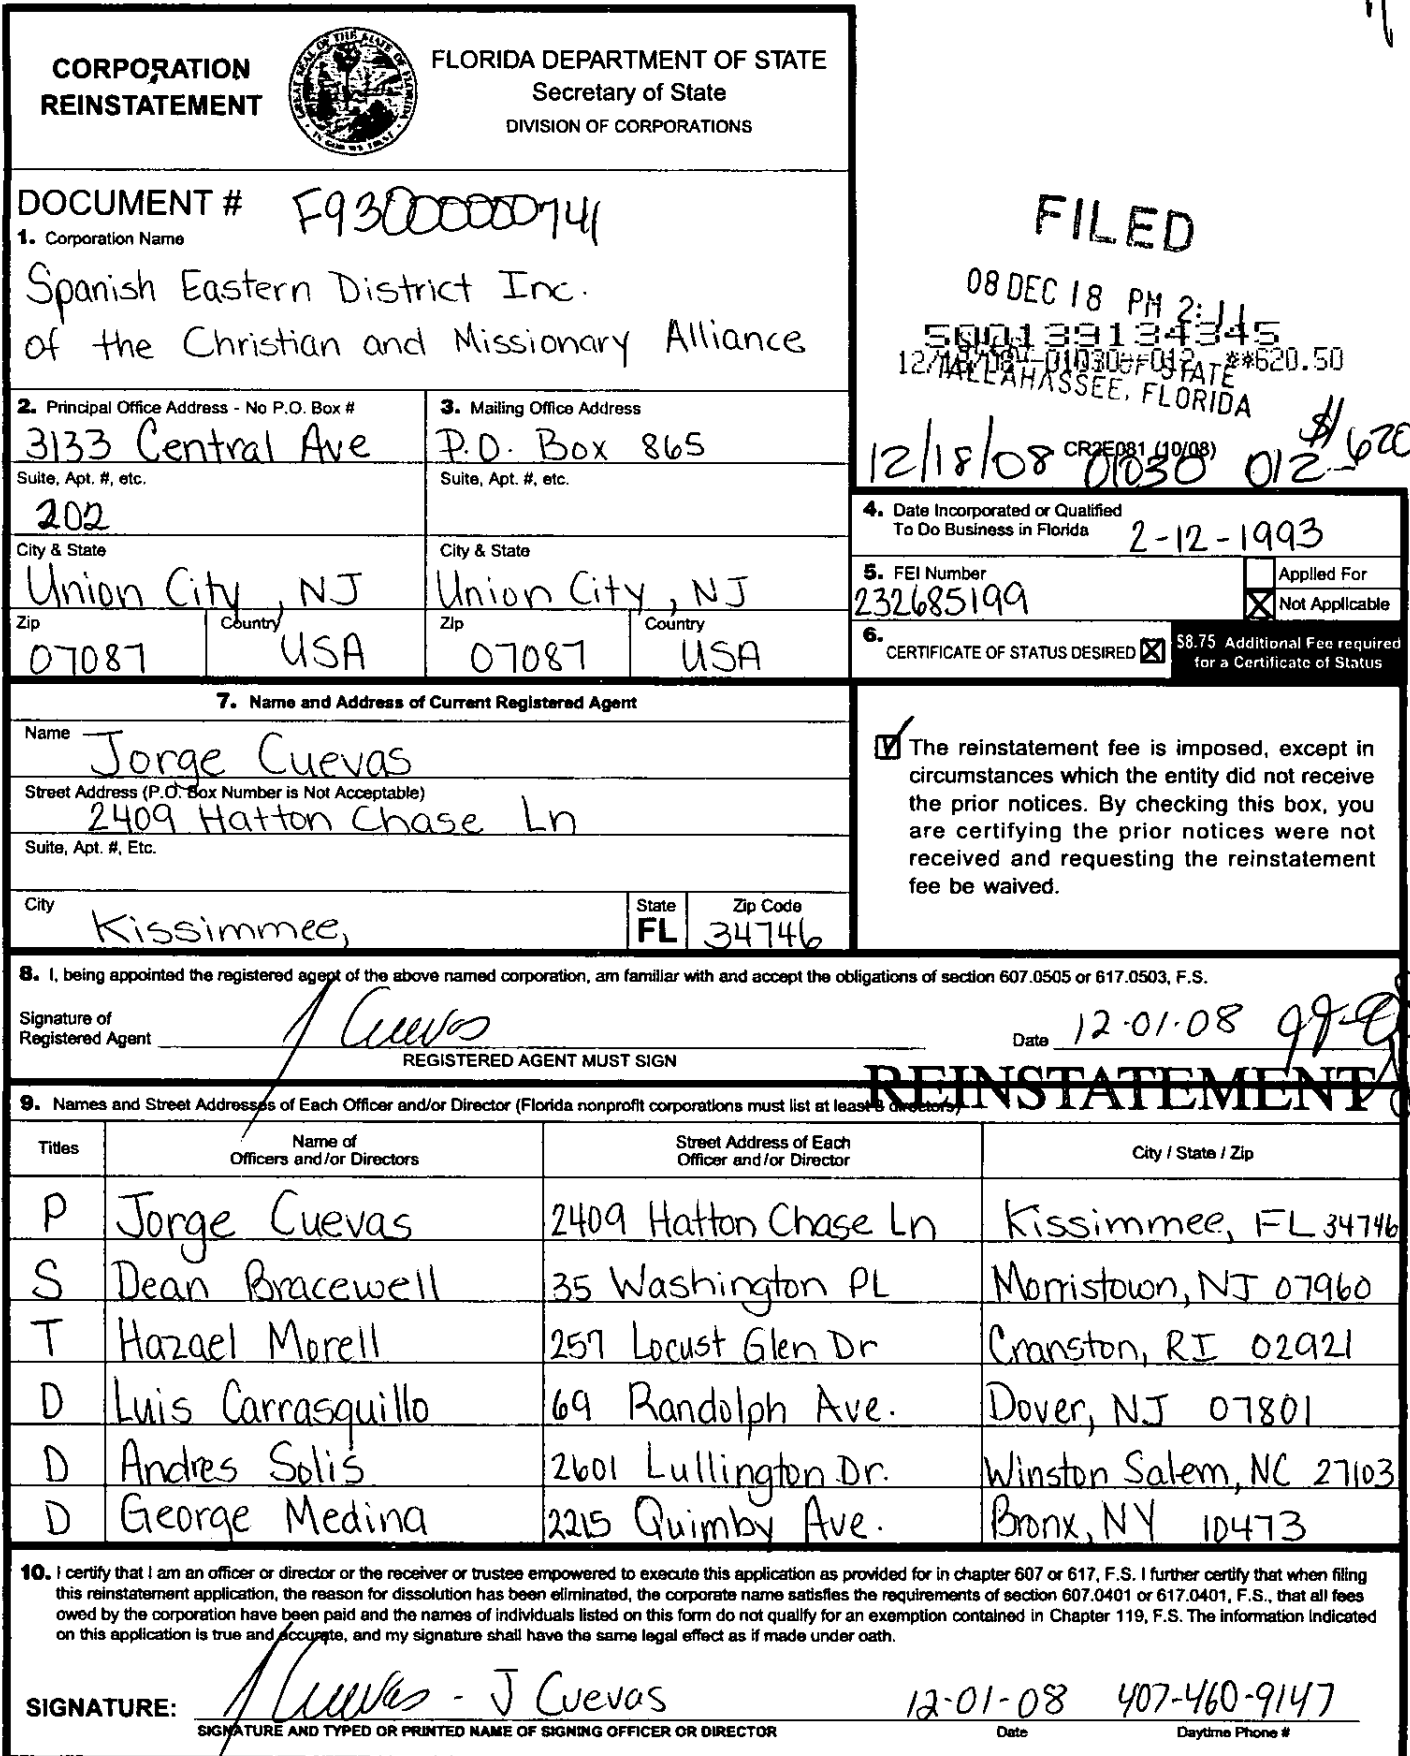 CORPORATION
REINSTATEMENT
FLORIDA DEPARTMENT OF STATE
Secretary of State
DIVISION OF CORPORATIONS
DOCUMENT # F93000000741
1. Corporation Name
Spanish Eastern District Inc.
of the Christian and Missionary Alliance
FILED
08 DEC 18 PM 2:11
500139134345
12/18/08--01030--012 **620.50
TALLAHASSEE, FLORIDA
12/18/08 01030 012 $620
CR2E081 (10/08)
2. Principal Office Address - No P.O. Box #
3133 Central Ave
Suite, Apt. #, etc.
202
City & State
Union City, NJ
Zip
07087
Country
USA
3. Mailing Office Address
P.O. Box 865
Suite, Apt. #, etc.
City & State
Union City, NJ
Zip
07087
Country
USA
4. Date Incorporated or Qualified
To Do Business in Florida 2-12-1993
5. FEI Number
232685199
Applied For
Not Applicable
6. CERTIFICATE OF STATUS DESIRED
$8.75 Additional Fee required
for a Certificate of Status
7. Name and Address of Current Registered Agent
Name
Jorge Cuevas
Street Address (P.O. Box Number is Not Acceptable)
2409 Hatton Chase Ln
Suite, Apt. #, Etc.
City
Kissimmee,
State
FL
Zip Code
34746
The reinstatement fee is imposed, except in
circumstances which the entity did not receive
the prior notices. By checking this box, you
are certifying the prior notices were not
received and requesting the reinstatement
fee be waived.
8. I, being appointed the registered agent of the above named corporation, am familiar with and accept the obligations of section 607.0505 or 617.0503, F.S.
Signature of
Registered Agent J Cuevas
REGISTERED AGENT MUST SIGN
Date 12-01-08
REINSTATEMENT
9. Names and Street Addresses of Each Officer and/or Director (Florida nonprofit corporations must list at least 3 directors)
Titles
Name of
Officers and/or Directors
Street Address of Each
Officer and/or Director
City / State / Zip
P Jorge Cuevas 2409 Hatton Chase Ln Kissimmee, FL 34746
S Dean Bracewell 35 Washington PL Morristown, NJ 07960
T Hazael Morell 257 Locust Glen Dr Cranston, RI 02921
D Luis Carrasquillo 69 Randolph Ave. Dover, NJ 07801
D Andres Solis 2601 Lullington Dr. Winston Salem, NC 27103
D George Medina 2215 Quimby Ave. Bronx, NY 10473
10. I certify that I am an officer or director or the receiver or trustee empowered to execute this application as provided for in chapter 607 or 617, F.S. I further certify that when filing
this reinstatement application, the reason for dissolution has been eliminated, the corporate name satisfies the requirements of section 607.0401 or 617.0401, F.S., that all fees
owed by the corporation have been paid and the names of individuals listed on this form do not qualify for an exemption contained in Chapter 119, F.S. The information indicated
on this application is true and accurate, and my signature shall have the same legal effect as if made under oath.
SIGNATURE: J Cuevas - J Cuevas 12-01-08 407-460-9147
SIGNATURE AND TYPED OR PRINTED NAME OF SIGNING OFFICER OR DIRECTOR
Date
Daytime Phone #